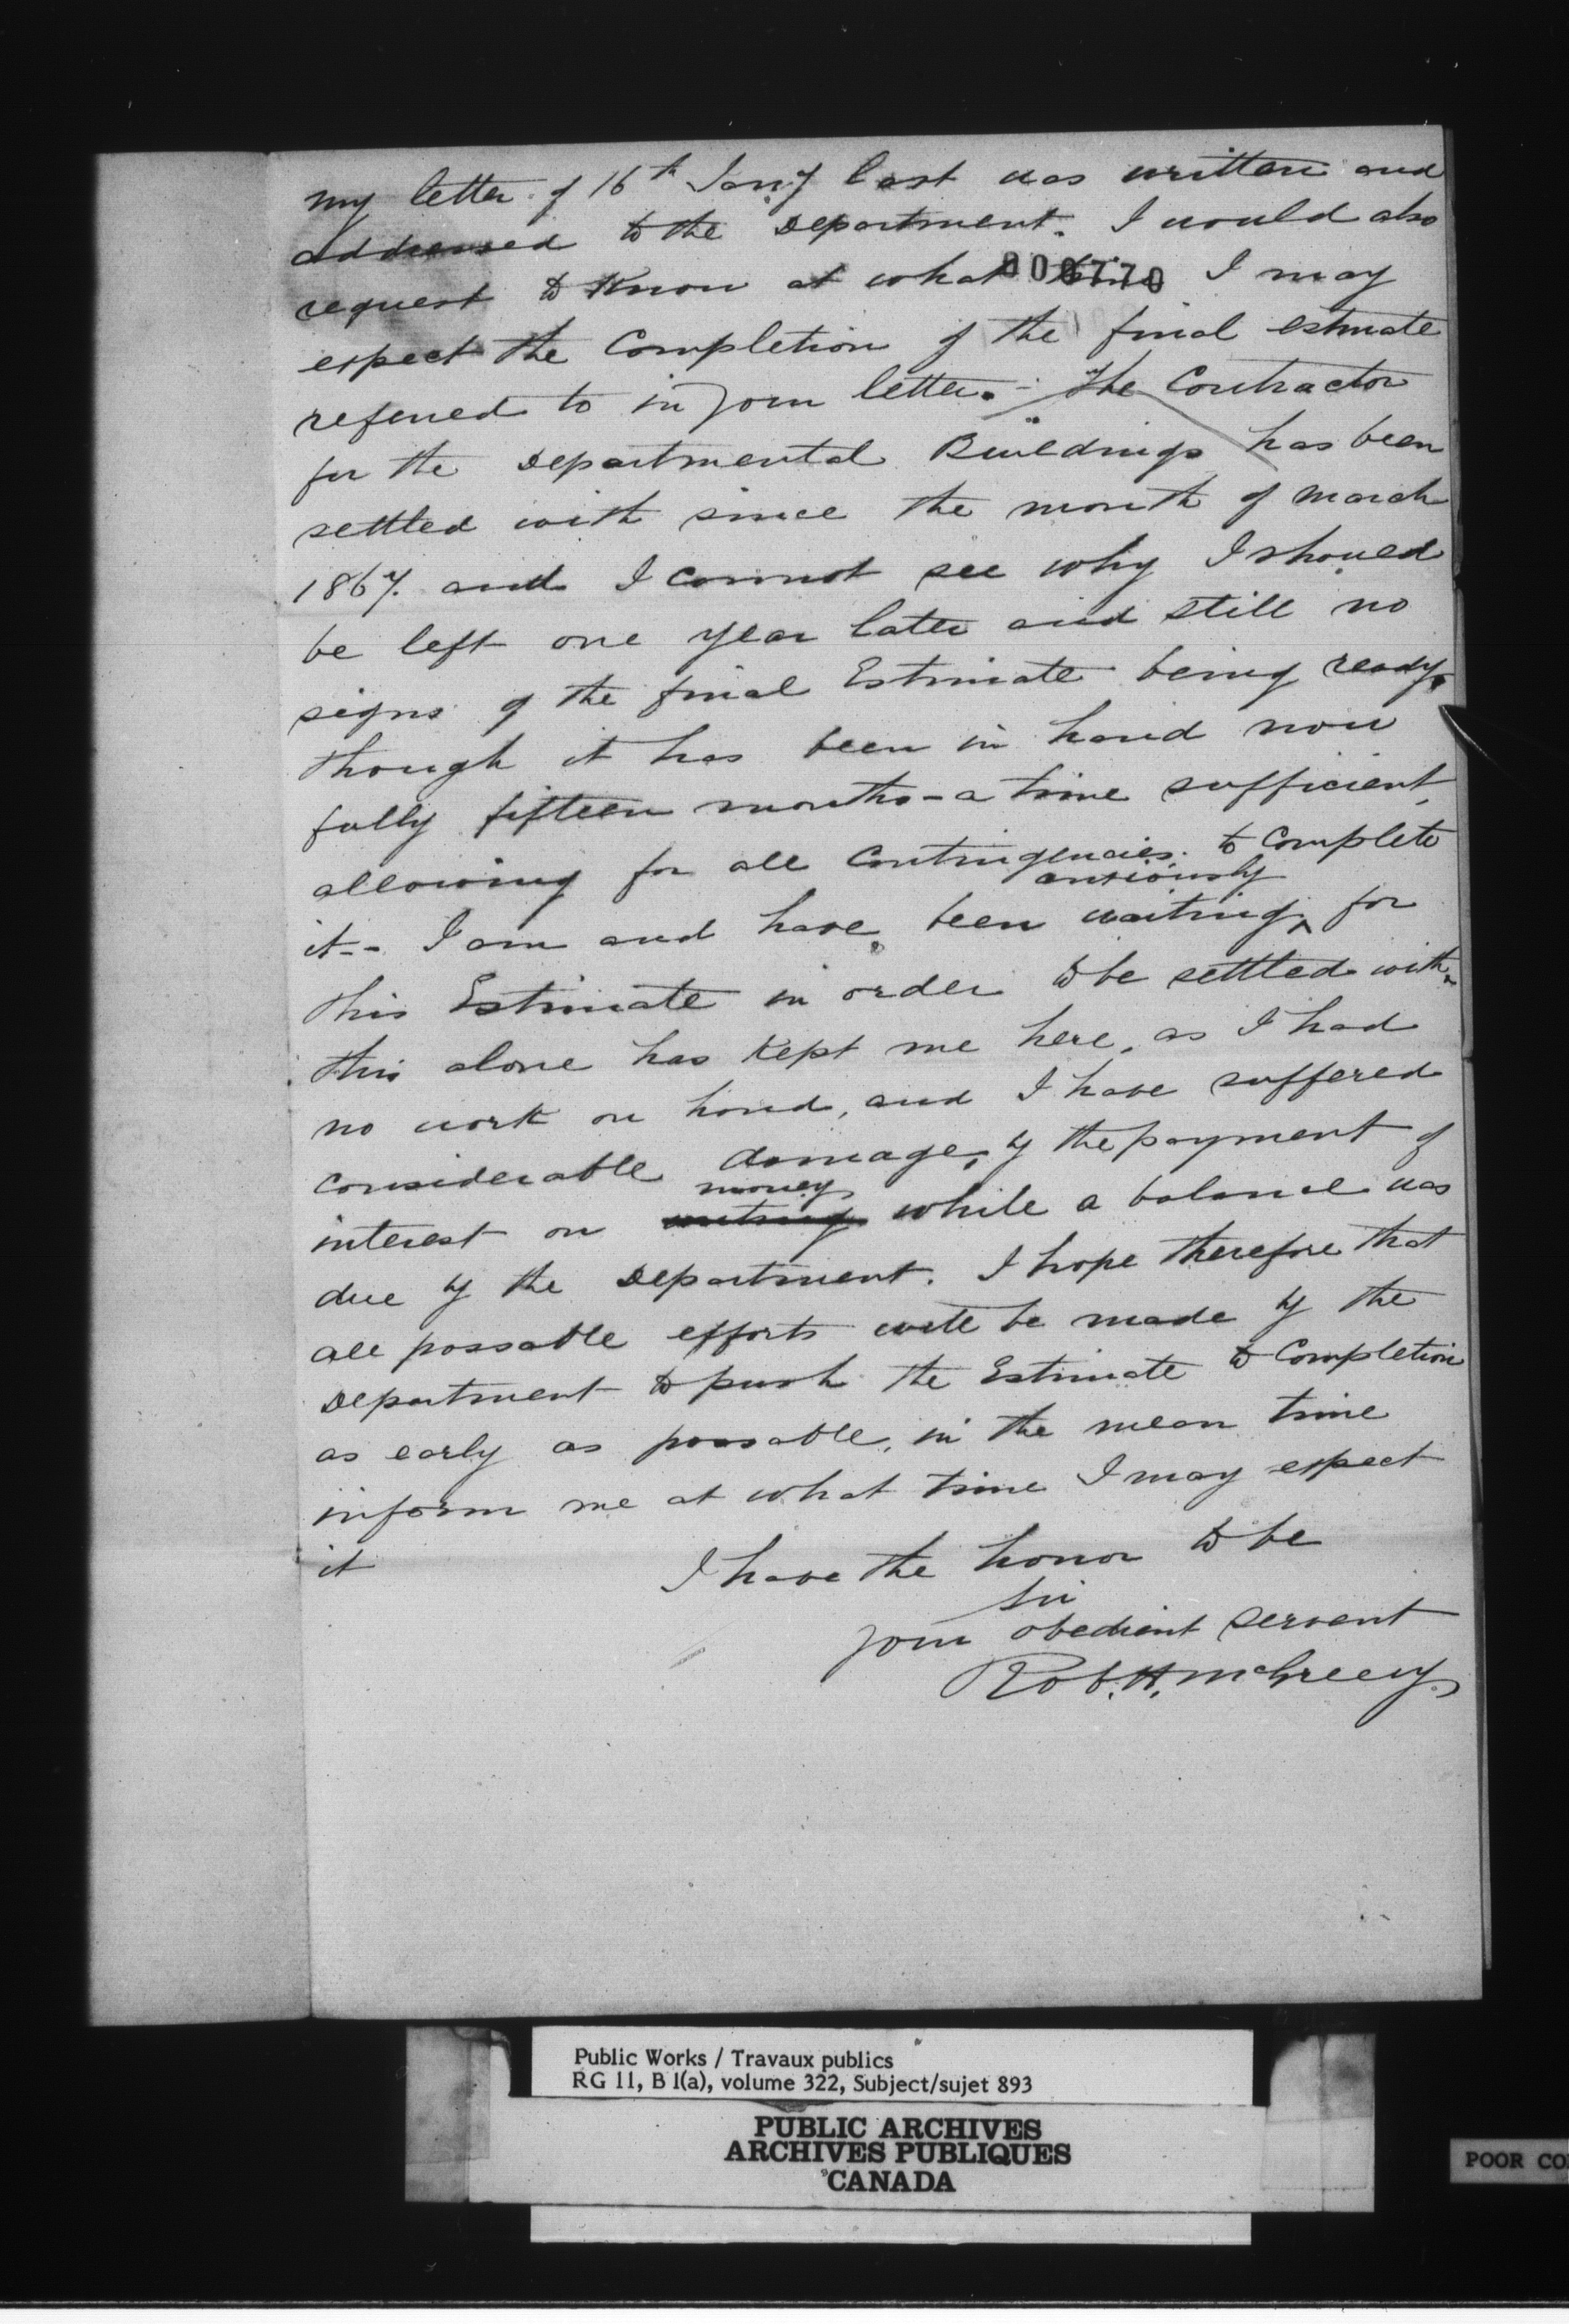 my letter of 16th Jany last was written and
addressed to the Department. I would also
request to Know at what time I may
006770
expect the Completion of the final estmate
refered to in your letter. - The Contractor
for the Departmental Buildings has been
settled with since the month of March
1867. and I cannot see why I should
be left one year later and still no
signs of the final Estimate being ready.
though it has been in hand now
fully fifteen months - a time sufficient,
allowing for all Contingencies, to Complete
anxiously
it - I am and have been waiting ^ for
this Estimate in order to be settled with.
this alone has Kept me here, as I had
no work on hand, and I have suffered
considerable damage, by the payment of
money
interest on while a balance was
due by the Department. I hope therefore that
all possable efforts will be made by the
Department to push the Estimate to Completion
as early as possable, in the mean time
inform me at what time I may expect
it
I have the honor to be
Sir
your obedient servent
Rob. H. McGreevy
Public Works / Travaux publics
RG 11, B 1(a), volume 322, Subject/sujet 893
PUBLIC ARCHIVES
ARCHIVES PUBLIQUES
CANADA
POOR CO